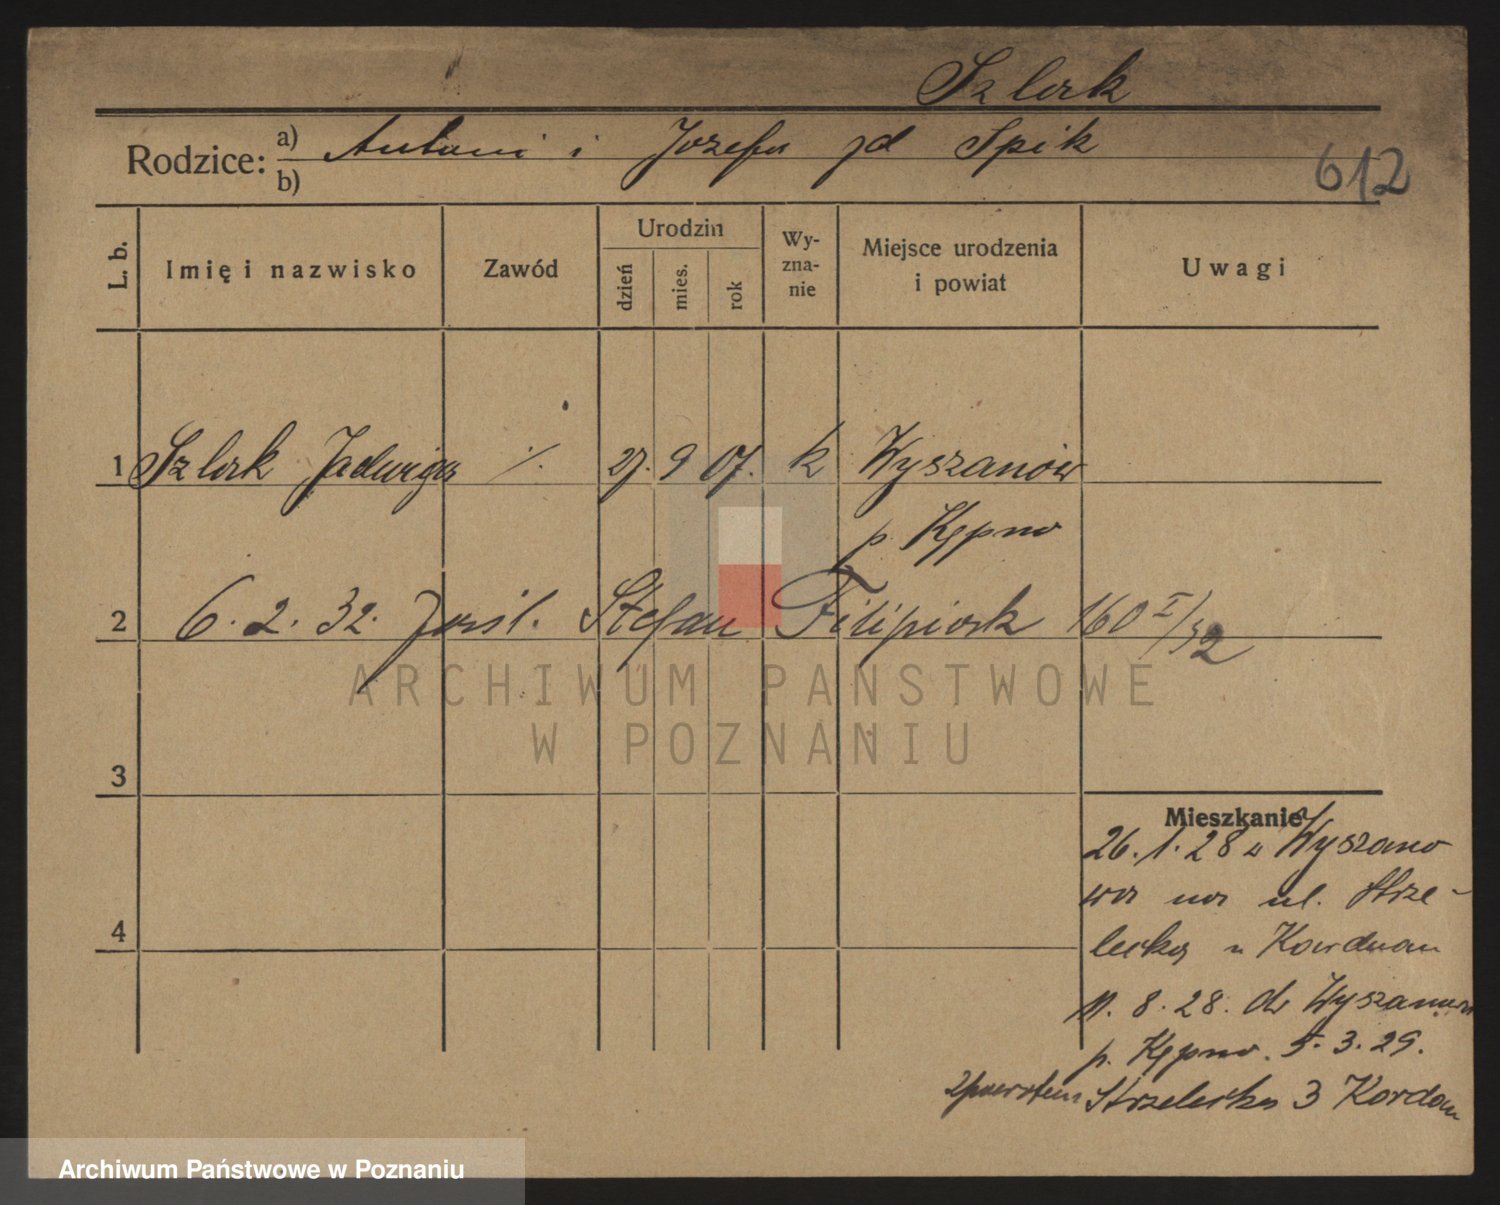 Szlak
Rodzice: a) Antoni i Józefa zd Spik
b)
612
L. b.
Imię i nazwisko
Zawód
Urodzin
dzień
mies.
rok
Wy-
zna-
nie
Miejsce urodzenia
i powiat
Uwagi
1 Szlak Jadwiga ./. 27. 9 07. k Wyszanów
p. Kępno
2 6. 2. 32. Stefan Filipiak 160 I/32
3
4
Mieszkanie
26. 1. 28 z Wyszano
wa na ul. Strze-
lecka u Korduan
11. 8. 28. do Wyszanowa
p. Kępno. 5. 3. 29.
Strzelecka 3 Kordan
ARCHIWUM PAŃSTWOWE
W POZNANIU
Archiwum Państwowe w Poznaniu